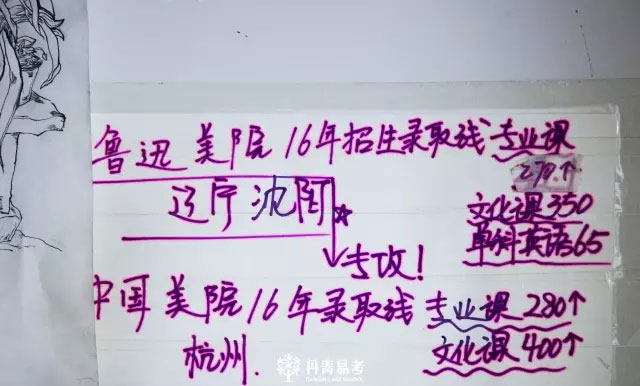 鲁迅美院16年招生录取线 专业课
270↑
辽宁沈阳☆
文化课350
单科英语65
↓专攻!
中国美院16年录取线 专业课280↑
杭州. 文化课400↑
丹青易考